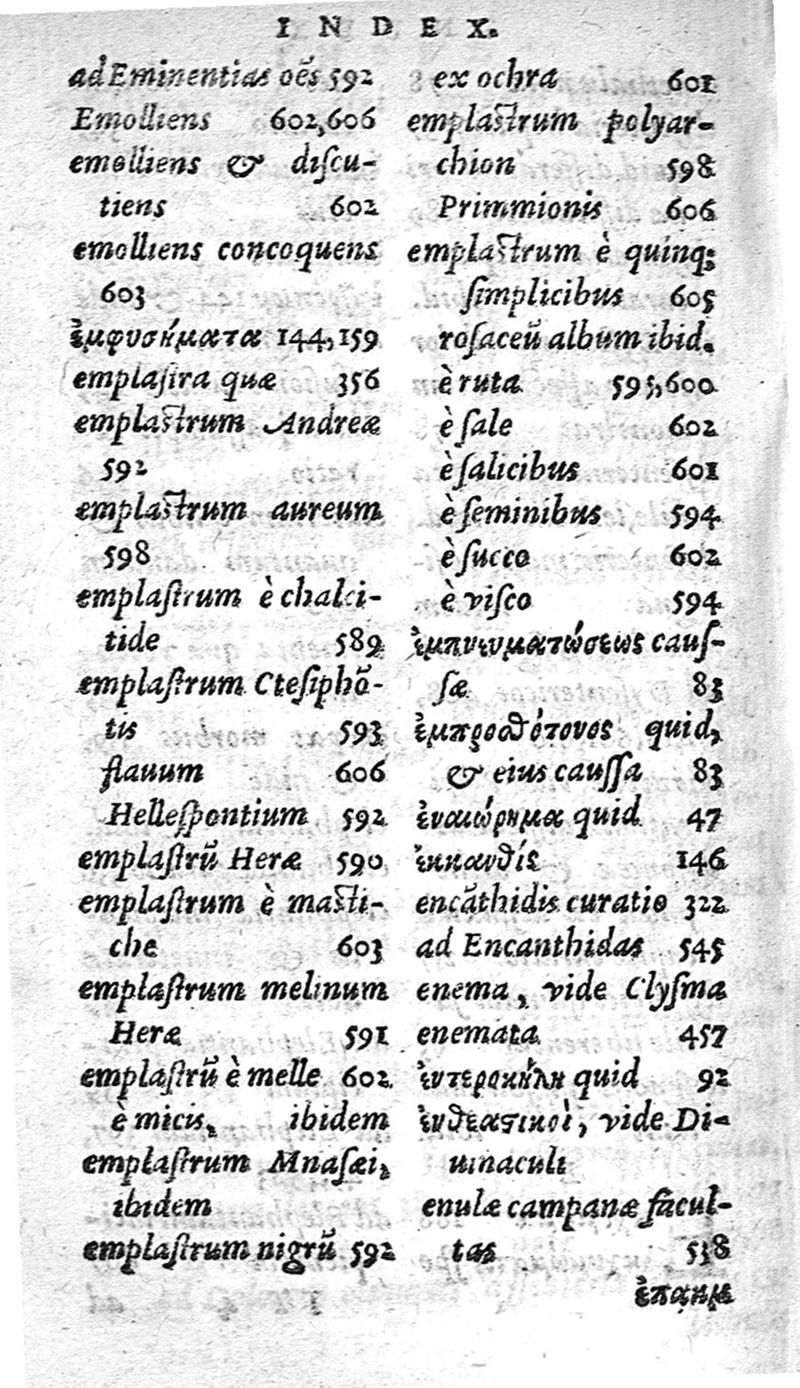 INDEX.
ad Eminentias oẽs 592
Emolliens 602,606
emolliens & discu-
tiens 602
emolliens concoquens
603
ἐμφυσήματα 144,159
emplastra quæ 356
emplastrum Andreæ
592
emplastrum aureum
598
emplastrum è chalci-
tide 589
emplastrum Ctesiphõ-
tis 593
flauum 606
Hellespontium 592
emplastrũ Heræ 590
emplastrum è masti-
che 603
emplastrum melinum
Heræ 591
emplastrũ è melle 602
è micis, ibidem
emplastrum Mnasæi,
ibidem
emplastrum nigrũ 592
ex ochra 601
emplastrum polyar-
chion 598
Primmionis 606
emplastrum è quinq;
simplicibus 605
rosaceũ album ibid.
è ruta 595,600
è sale 602
è salicibus 601
è seminibus 594
è succo 602
è visco 594
ἐμπνευματώσεως caus-
sæ 83
ἐμπροσθότονος quid,
& eius caussa 83
ἐναιώρημα quid 47
ἐκκανθίς 146
encãthidis curatio 322
ad Encanthidas 545
enema, vide Clysma
enemata 457
ἐντεροκήλη quid 92
ἐνθεαστικοὶ, vide Di-
uinaculi
enulæ campanæ facul-
tas 538